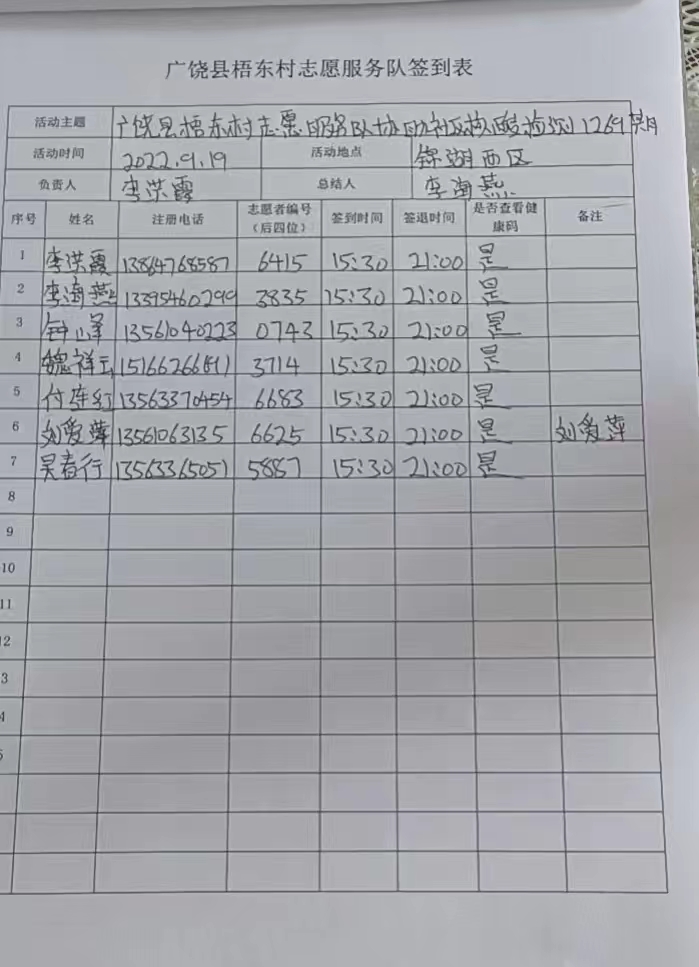 广饶县梧东村志愿服务队签到表
活动主题 广饶县梧东村志愿服务队协助社区核酸检测1269期
活动时间 2022.9.19 活动地点 锦湖西区
负责人 李洪霞 总结人 李海燕
序号 姓名 注册电话 志愿者编号（后四位） 签到时间 签退时间 是否查看健康码 备注
1 李洪霞 13864768587 6415 15:30 21:00 是
2 李海燕 13395460299 3835 15:30 21:00 是
3 钟峰 13561040223 0743 15:30 21:00 是
4 魏祥云 3714 15:30 21:00 是
5 付连红 13563370454 6683 15:30 21:00 是
6 刘爱萍 13561063135 6625 15:30 21:00 是 刘爱萍
7 吴春行 13563365051 5887 15:30 21:00 是
8
9
10
11
12
3
4
5